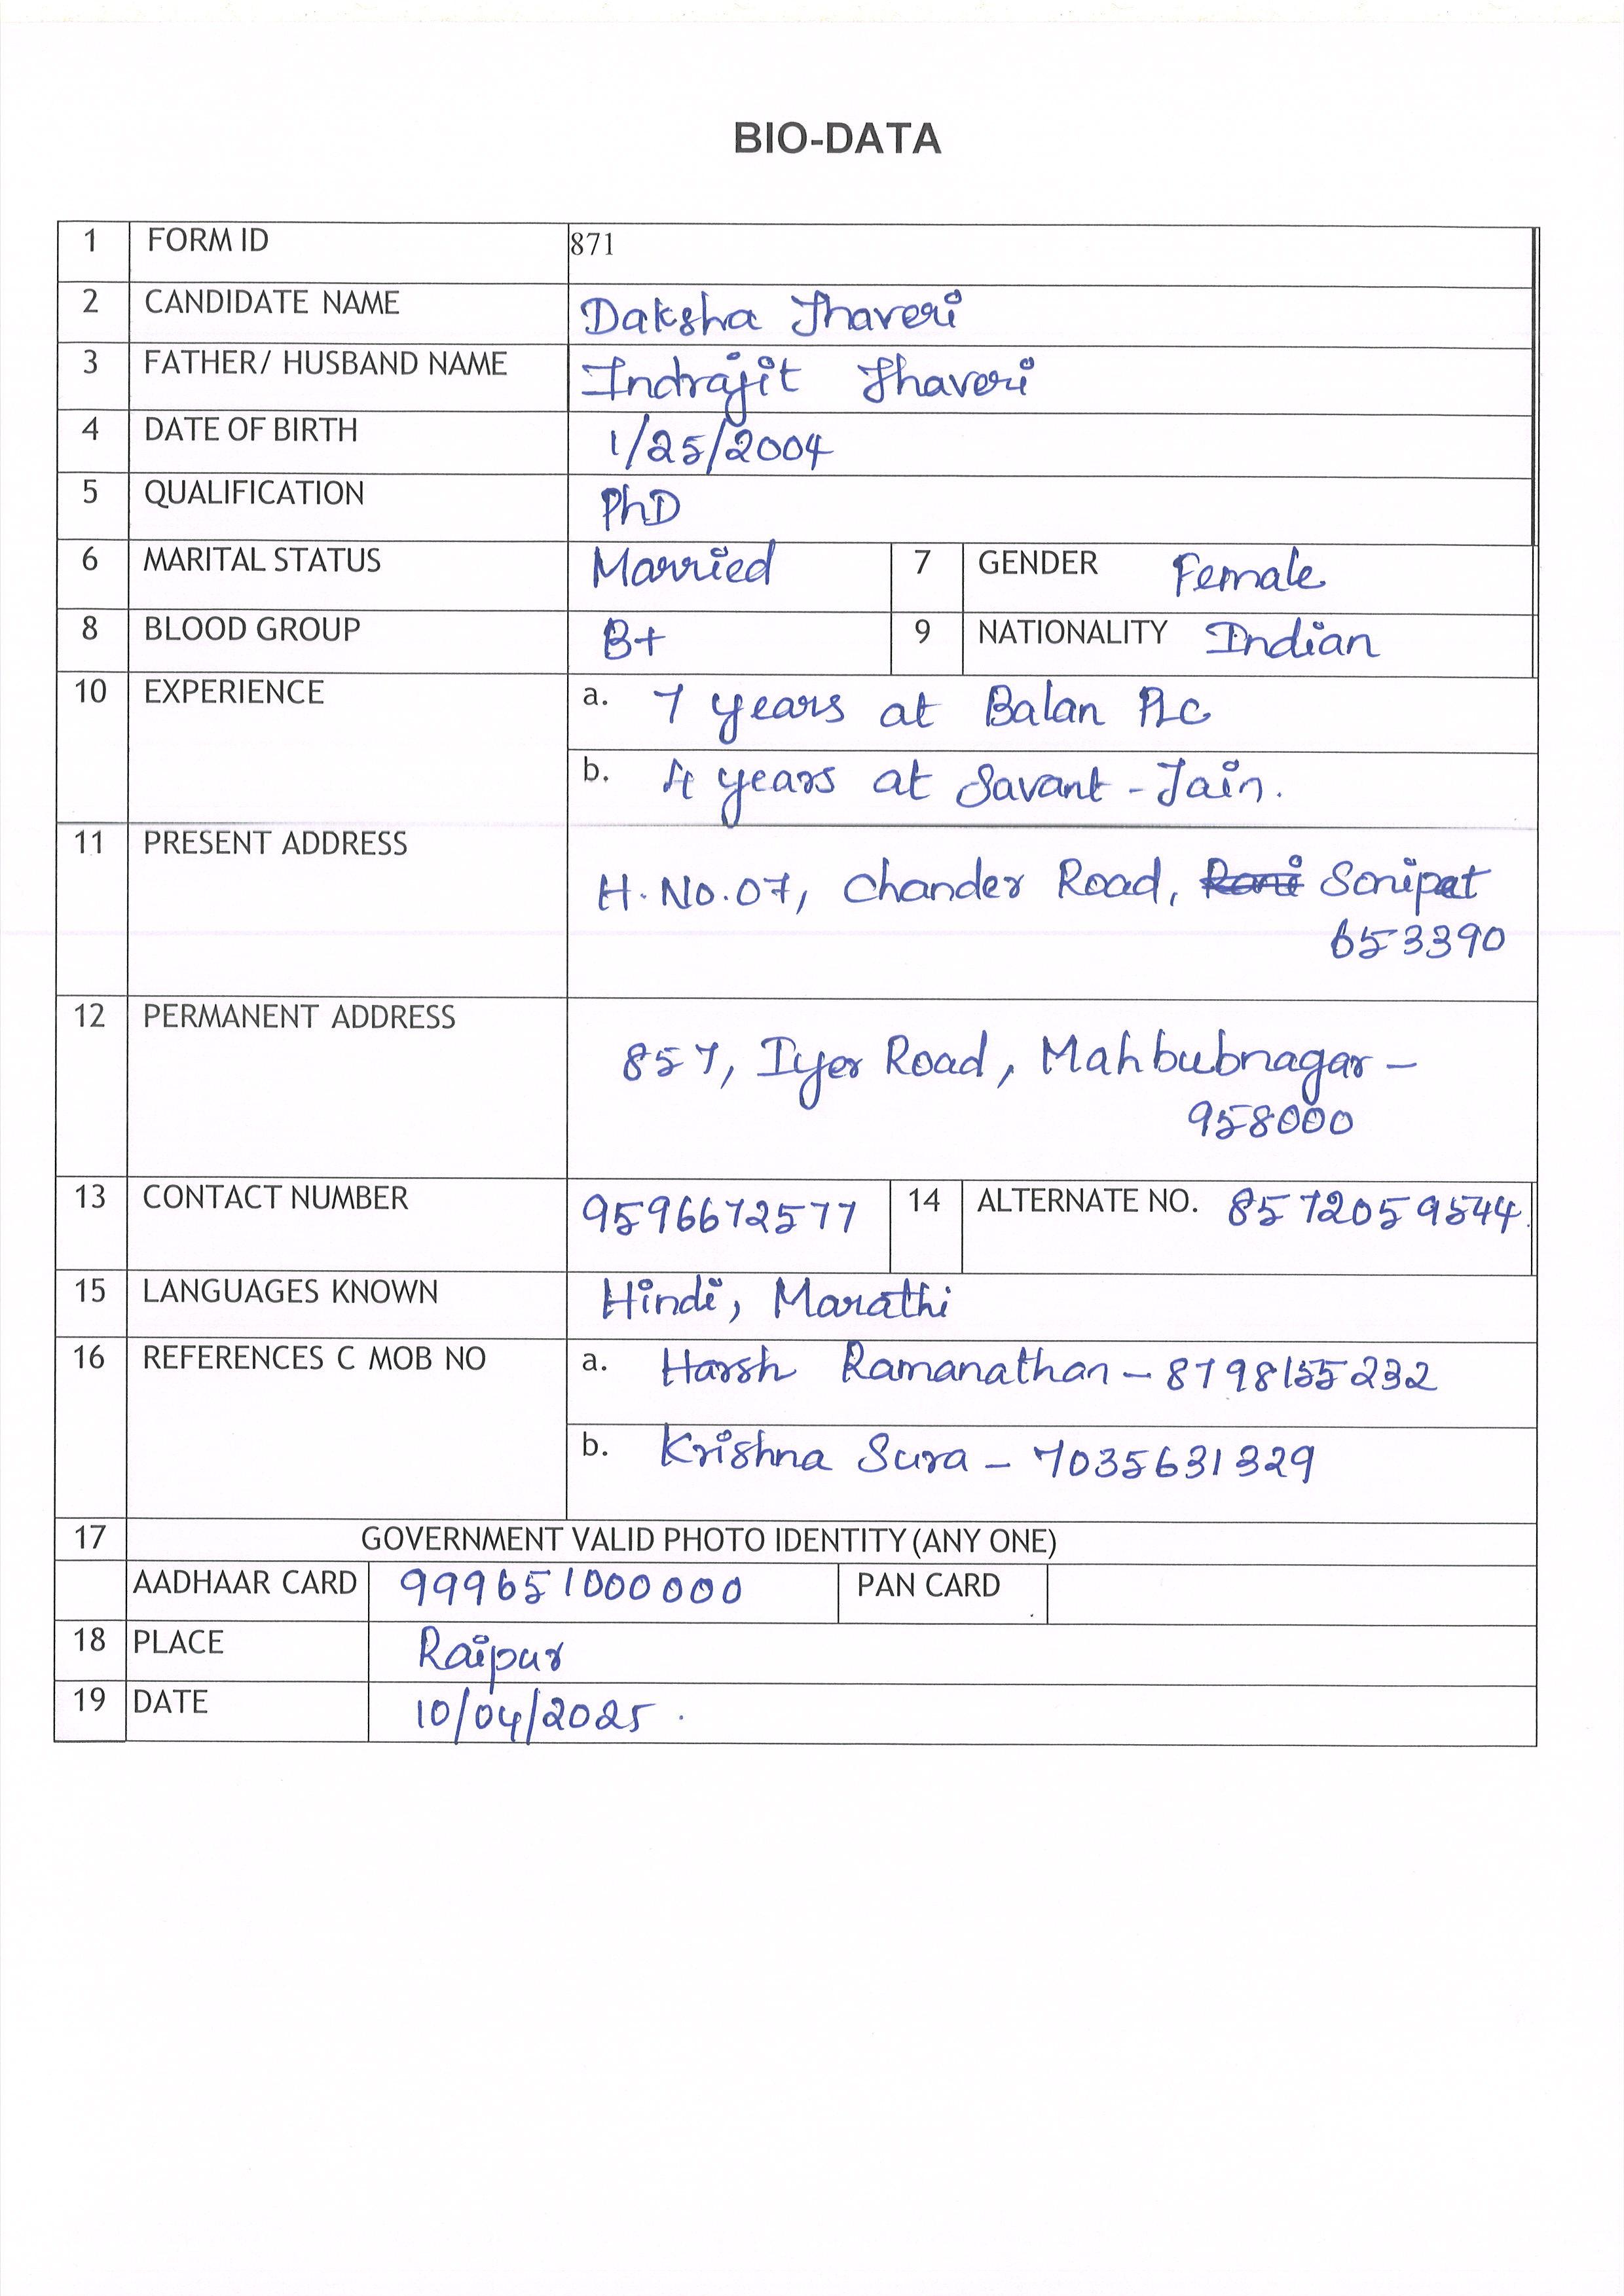 BIO-DATA
1 FORM ID 871
2 CANDIDATE NAME Daksha Jhaveri
3 FATHER/ HUSBAND NAME Indrajit Jhaveri
4 DATE OF BIRTH 1/25/2004
5 QUALIFICATION PhD
6 MARITAL STATUS Married 7 GENDER Female
8 BLOOD GROUP B+ 9 NATIONALITY Indian
10 EXPERIENCE a. 7 years at Balan PLC
b. 4 years at Savant-Jain.
11 PRESENT ADDRESS
H.No.07, Chander Road, Sonipat
653390
12 PERMANENT ADDRESS
857, Iyer Road, Mahbubnagar –
958000
13 CONTACT NUMBER 9596672577 14 ALTERNATE NO. 8572059544
15 LANGUAGES KNOWN Hindi, Marathi
16 REFERENCES C MOB NO a. Harsh Ramanathan – 8798155232
b. Krishna Sura – 7035631329
17 GOVERNMENT VALID PHOTO IDENTITY (ANY ONE)
AADHAAR CARD 999651000000 PAN CARD
18 PLACE Raipur
19 DATE 10/04/2025.